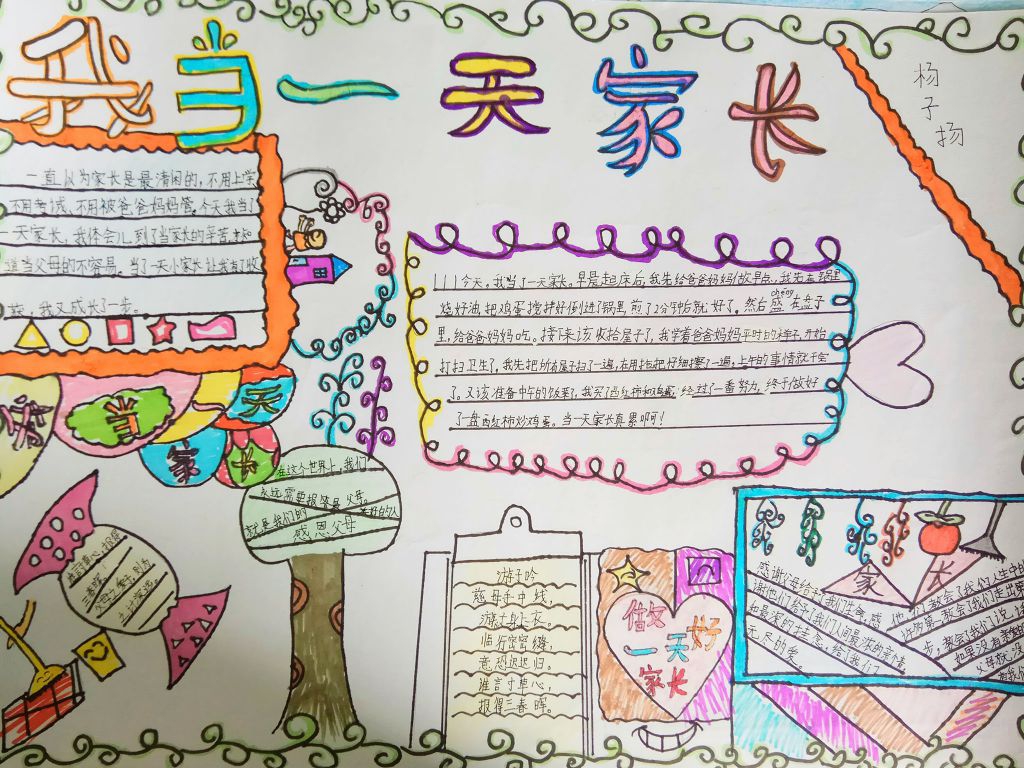 我当一天家长
杨子扬
一直以为家长是最清闲的,不用上学
不用考试、不用被爸爸妈妈管。今天我当了
一天家长,我体会到了当家长的辛苦,
道当父母的不容易。当了一天小家长让我有了收
获,我又成长了一步。
今天。我当了一天家长。早晨起床后,我先给爸爸妈妈做早点,我先在锅里
烧好油,把鸡蛋搅拌好倒进了锅里,煎了2分钟后就好了。然后盛在盘子
chéng
里,给爸爸妈妈吃。接下来该收拾屋子了,我学着爸爸妈妈平时的样子,开始
打扫卫生了,我先把所有屋子扫了一遍,在用拖把仔细擦了一遍,上午的事情就干完
了。又该准备中午的饭菜,我买了西红柿和鸡蛋,经过了一番努力,终于做好
了一盘西红柿炒鸡蛋。当一天家长真累啊!
当
天
家
长
在这个世界上,我们
永远需要报答
父母。
就是我们的
感恩父母
游子吟
慈母手中线,
游子身上衣。
临行密密缝,
意恐迟迟归。
谁言寸草心,
报得三春晖。
做好
一天
家长
家长
感谢父母给予我们生命,感
谢他们给予我们人间最浓的亲情
和最深的挂念,给了我们
无尽的爱。
们教会了我们人生中的
许多第一,教会了我们走出第
步,教会了我们说
如果没有
父母